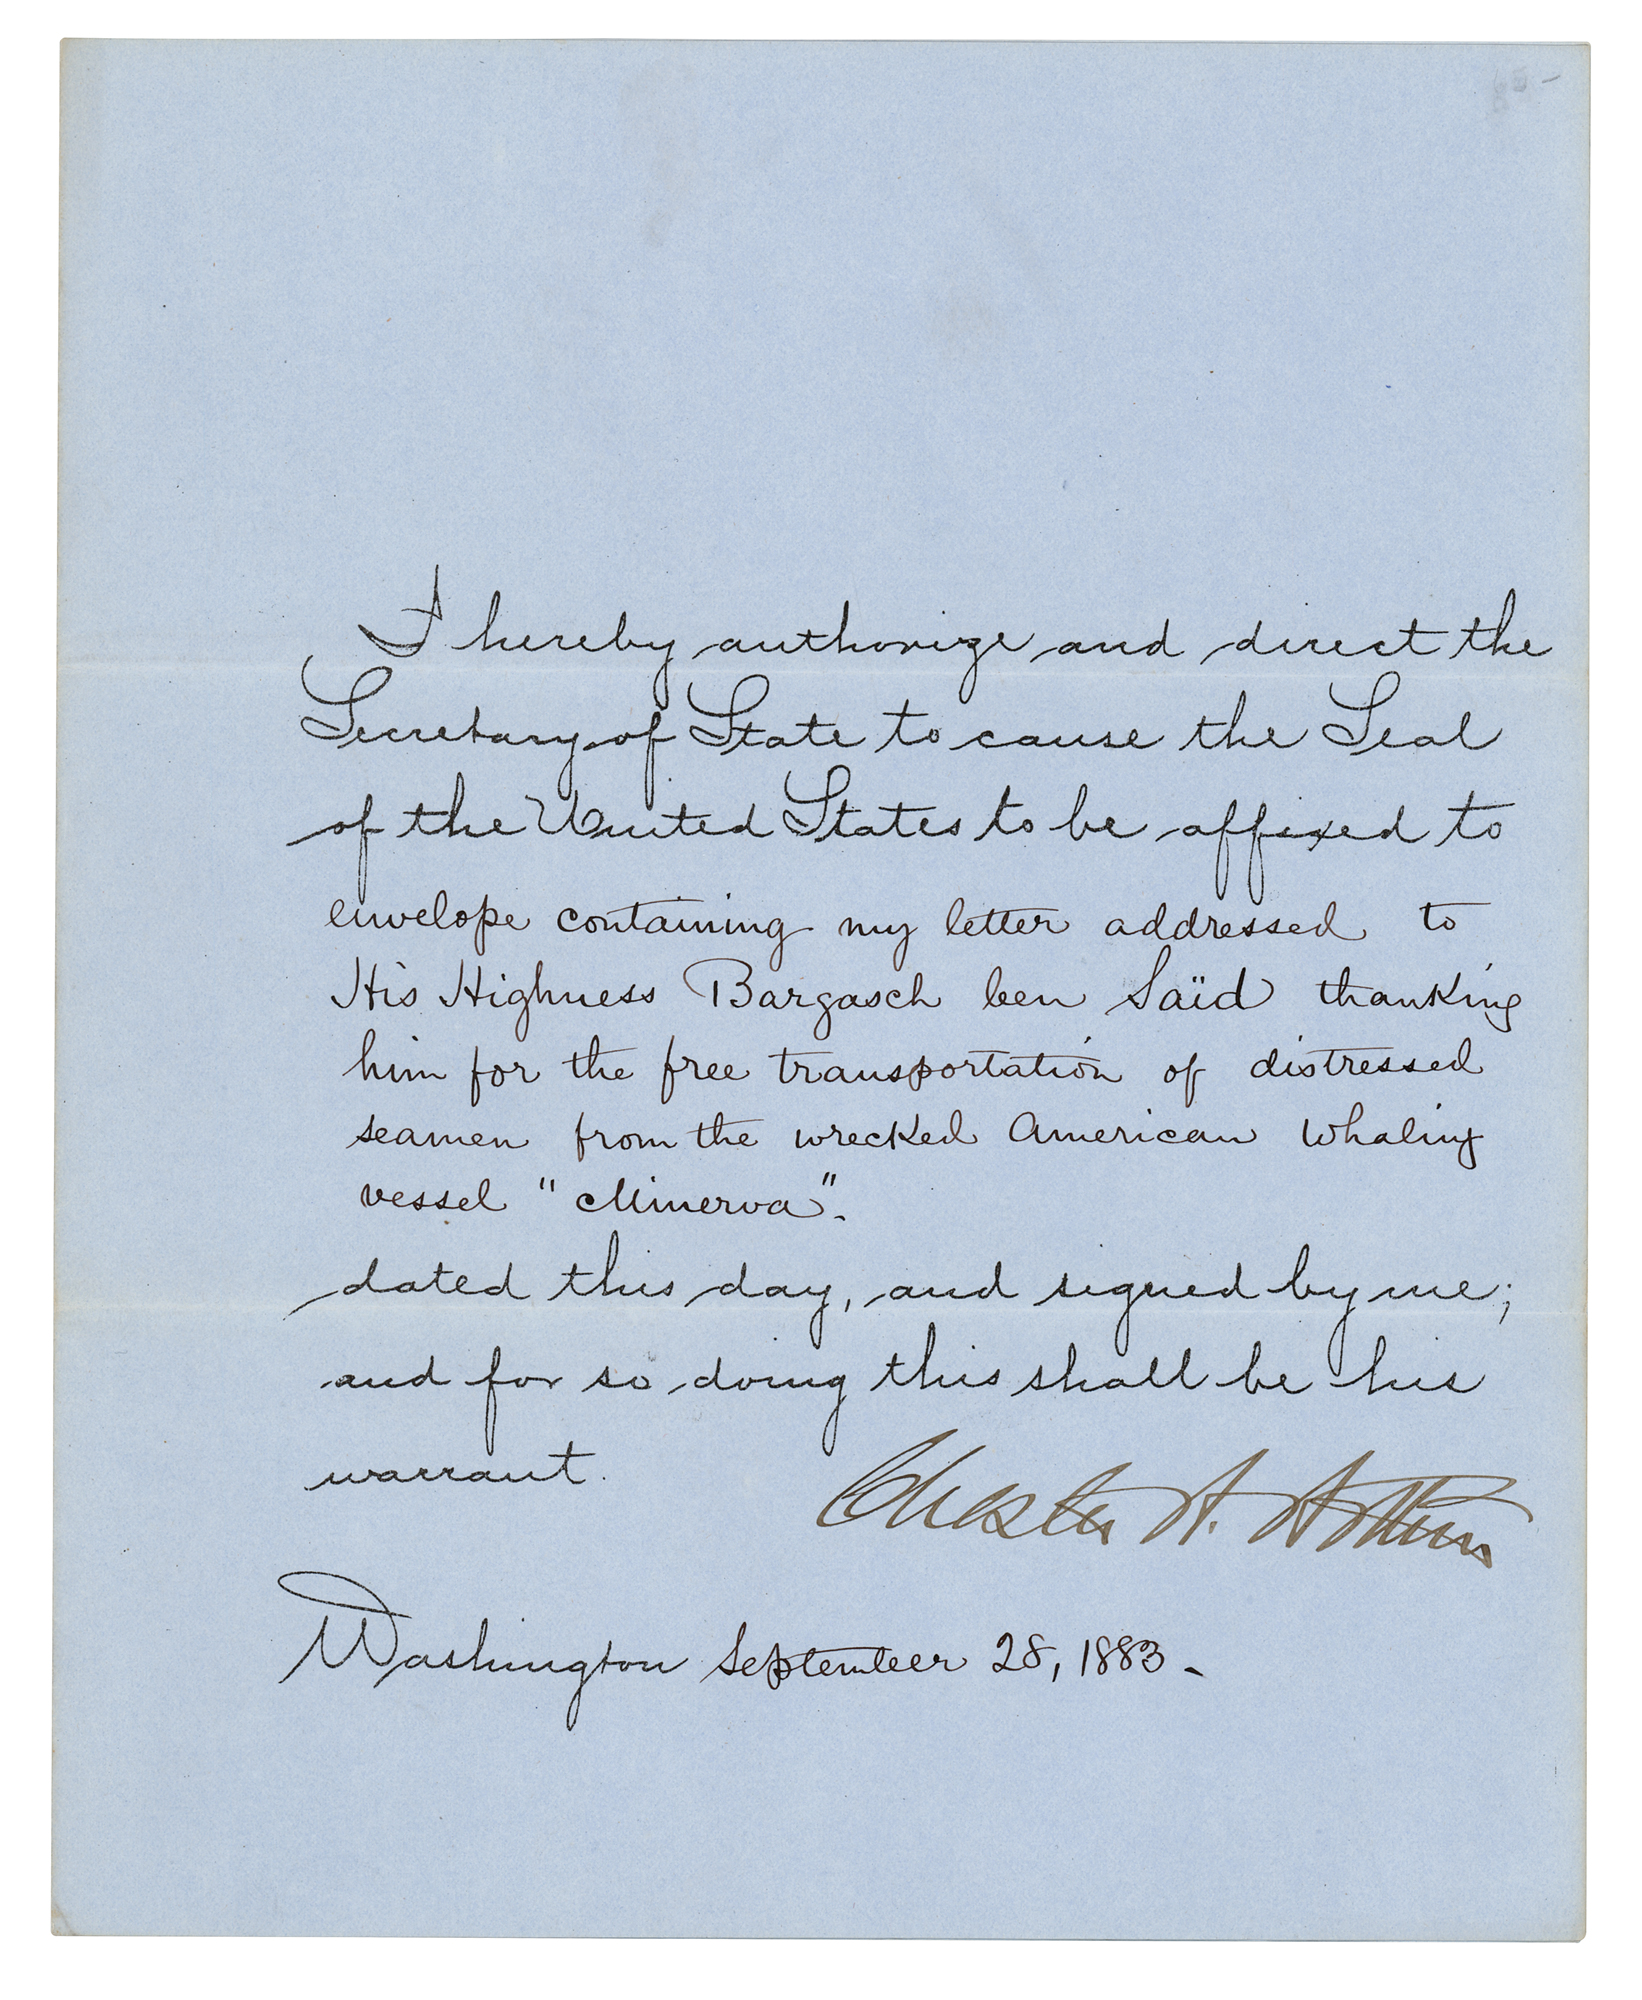 I hereby authorize and direct the
Secretary of State to cause the Seal
of the United States to be affixed to
envelope containing my letter addressed to
His Highness Bargasch ben Saïd thanking
him for the free transportation of distressed
seamen from the wrecked American whaling
vessel "Minerva".
dated this day, and signed by me;
and for so doing this shall be his
warrant.
Chester A. Arthur
Washington September 28, 1883.